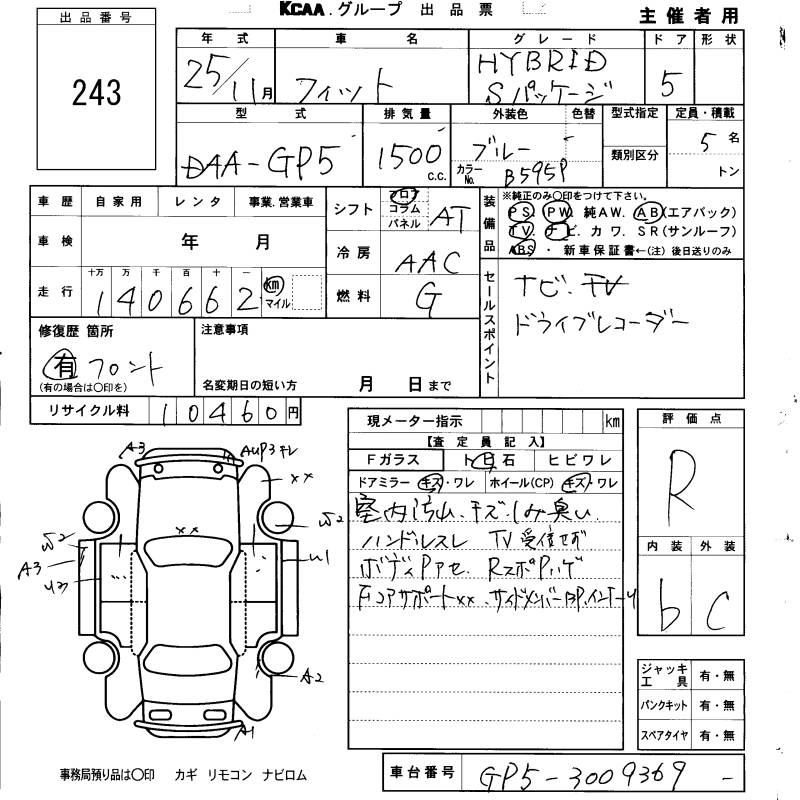 KCAA.グループ 出品票
主催者用
出品番号
243
年式 車名 グレード ドア 形状
25/11月 フィット HYBRID Sパッケージ 5
型式 排気量 外装色 色替 型式指定 定員・積載
DAA-GP5 1500c.c. ブルー 類別区分 5名
カラーNo. B595P トン
車歴 自家用 レンタ 事業.営業車
シフト フロア コラム パネル AT
装備品 ※純正のみ〇印をつけて下さい。
PS. PW. 純AW. AB(エアバック)
TV. ナビ. カワ. SR(サンルーフ)
ABS. ・新車保証書←(注)後日送りのみ
車検 年 月
冷房 AAC
走行 十万 万 千 百 十 一
140662 km マイル
燃料 G
セールスポイント
ナビ.TV
ドライブレコーダー
修復歴 箇所
有 フロント
(有の場合は〇印を)
注意事項
名変期日の短い方 月 日まで
リサイクル料 10460円
現メーター指示 km
【査定員記入】
Fガラス ト白石 ヒビワレ
ドアミラー キズ・ワレ ホイール(CP) キズ・ワレ
室内汚れ.キズ.しみ臭い.
ハンドルスレ TV受信せず
ボディPアセ. RスポPハゲ
FコアサポートXX.サイドメンバーBP.インナーU
評価点
R
内装 外装
b C
A3
AUP3
XX
XX
W2
W2
A3
U2
U1
A2
A1
ジャッキ 工具 有・無
パンクキット 有・無
スペアタイヤ 有・無
事務局預り品は〇印 カギ リモコン ナビロム
車台番号 GP5-3009369 -